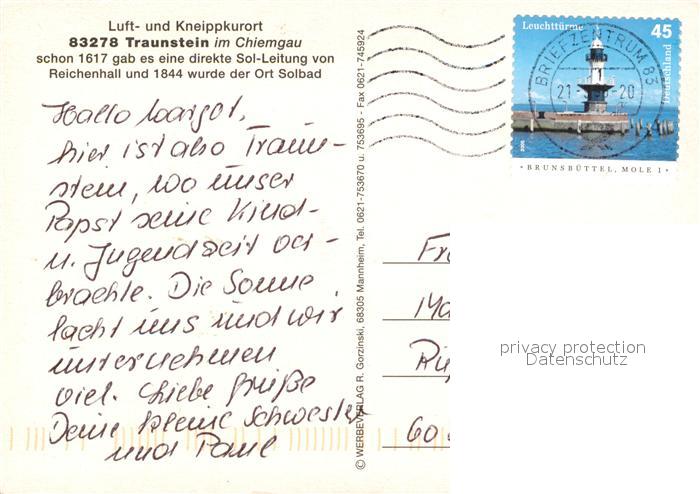 Luft- und Kneippkurort
83278 Traunstein im Chiemgau
schon 1617 gab es eine direkte Sol-Leitung von
Reichenhall und 1844 wurde der Ort Solbad
Hallo Margot,
hier ist also Traun-
stein, wo unser
Papst seine Kind-
u. Jugendzeit ver-
brachte. Die Sonne
lacht uns und wir
unternehmen
viel. Liebe Grüße
Deine kleine Schwester
und Paul
© WERBEVERLAG R. Gorzinski, 68305 Mannheim, Tel. 0621-753670 u. 753695 - Fax 0621-745924
Leuchttürme 45
Deutschland
BRIEFZENTRUM 83
21 20
BRUNSBÜTTEL, MOLE 1
Fr
Ma
60
privacy protection
Datenschutz